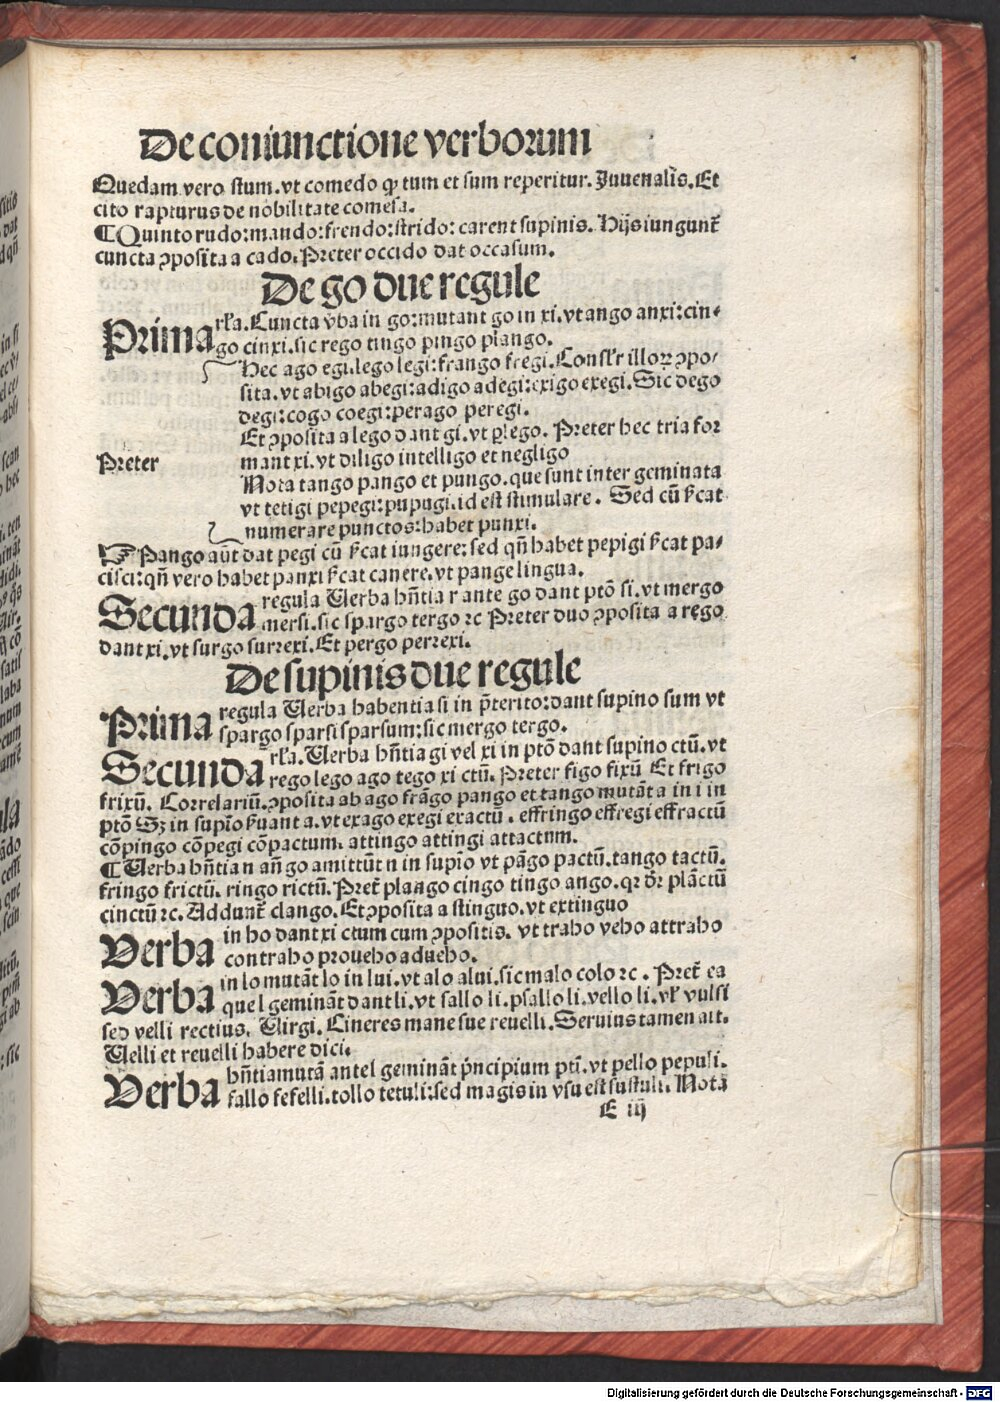 De coniunctione verborum
Quedam vero stum. vt comedo ꝙ tum et sum reperitur. Juuenalis. Et
cito rapturus de nobilitate comesa.
¶ Quinto rudo: mando: frendo: strido: carent supinis. Hijs iungunt᷑
cuncta ꝯposita a cado. Preter occido dat occasum.
De go due regule
Prima rl̓a. Cuncta v̓ba in go: mutant go in xi. vt ango anxi: cin-
go cinxi. sic rego tingo pingo piango.
Hec ago egi. lego legi: frango fregi. Consil̓r illoꝝ ꝯpo-
sita. vt abigo abegi: adigo adegi: exigo exegi. Sic dego
degi: cogo coegi: perago peregi.
Et ꝯposita a lego dant gi. vt ꝑlego. Preter hec tria for
Preter mant xi. vt diligo intelligo et negligo
Nota tango pango et pungo. que sunt inter geminata
vt tetigi pepegi: pupugi. id est stimulare. Sed cū s̓cat
numerare punctos: habet punxi.
☞ Pango aūt dat pegi cū s̓cat iungere: sed qn̄ habet pepigi s̓cat pa-
cisci: qn̄ vero habet panxi s̓cat canere. vt pange lingua.
Secunda regula Uerba hn̄tia r ante go dant ptō si. vt mergo
mersi. sic spargo tergo ⁊c Preter duo ꝯposita a rego
dant xi. vt surgo surrexi. Et pergo perrexi.
De supinis due regule
Prima regula Uerba habentia si in p̄terito: dant supino sum vt
spargo sparsi sparsum: sic mergo tergo.
Secunda rl̓a. Uerba hn̄tia gi vel xi in ptō dant supino ctū. vt
rego lego ago tego xi ctū. Preter figo fixū Et frigo
frixū. Correlariū. ꝯposita ab ago frāgo pango et tango mutāt a in i in
ptō Sꝫ in supīo s̓uant a. vt exago exegi exactū. effringo effregi effractū
cōpingo cōpegi cōpactum. attingo attingi attactum.
¶ Uerba hn̄tia n an̄ go amittūt n in supīo vt pāgo pactū. tango tactū.
fringo frictū. ringo rictū. Pret᷑ plango cingo tingo ango. qꝛ dr̄ plāctū
cinctū ⁊c. Addunt᷑ clango. Et ꝯposita a stinguo. vt extinguo
Verba in ho dant xi ctum cum ꝯpositis. vt traho veho attraho
contraho proueho adueho.
Verba in lo mutāt lo in lui. vt alo alui. sic malo colo ⁊c. Pret᷑ ea
que l gemināt dant li. vt sallo li. psallo li. vello li. vl̓ vulsi
sed velli rectius. Uirgi. Cineres mane sue reuelli. Seruius tamen ait.
Uelli et reuelli habere dici.
Verba hn̄tia mutā ante l gemināt p̓ncipium pt̄i. vt pello pepuli.
fallo fefelli. tollo tetuli: sed magis in vsu est sustuli. Nota
E iij
Digitalisierung gefördert durch die Deutsche Forschungsgemeinschaft - DFG